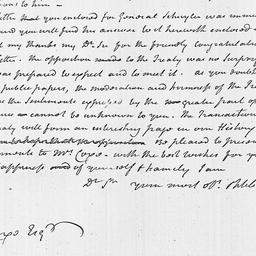 to him —
that you enclosed for General Schuyler was imme
and you will find his answer to it herewith enclosed
my thanks my Dr. Sir for the friendly congratulat
The opposition made to the Treaty was no Surpri
was prepared to expect and to meet it. as you doubt
public papers, the moderation and firmness of the
the Sentiments expressed by the greater part of
cannot be unknown to you. The Transaction
will form an interesting page in our History
Be pleased to presen
to Mrs. Coxe — with the best wishes for yo
happiness and of yourself & family I am
Dr Sr your most ob.
Esqr